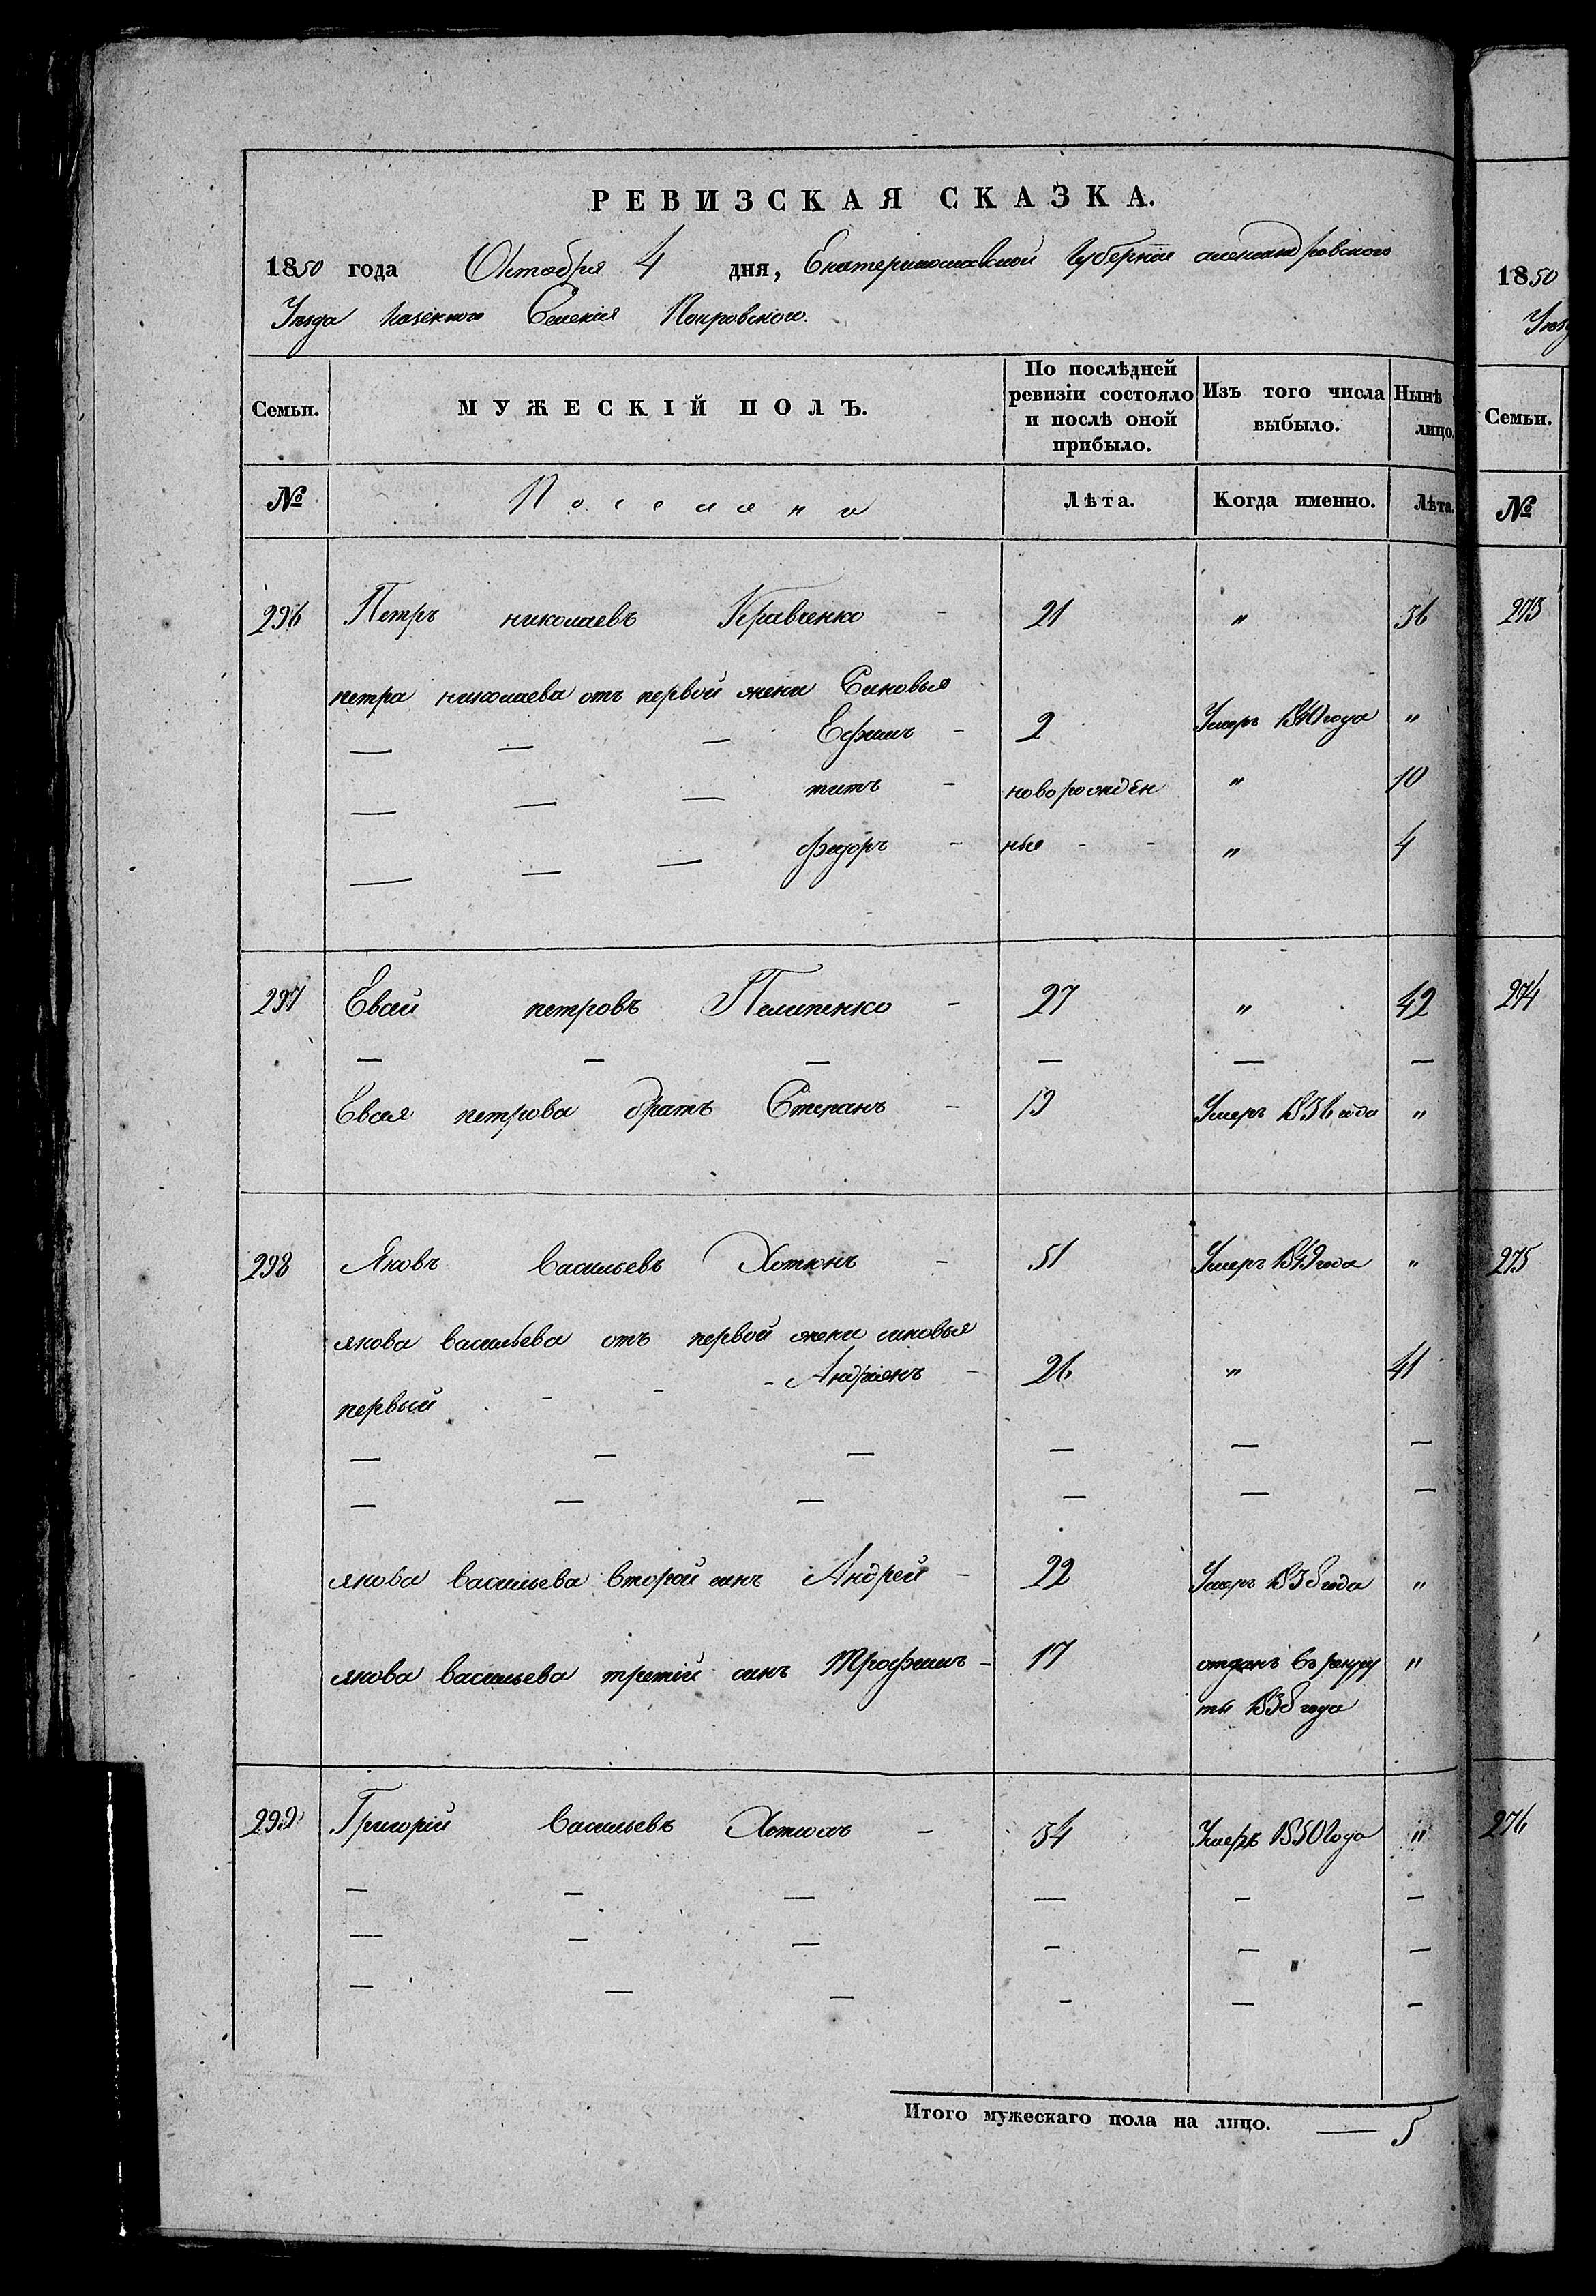 РЕВИЗСКАЯ СКАЗКА.
1850 года Октобря 4 дня, Екатеринославской Губерніи александровскаго
Уезда Казённого Селенія Покровского.
Семьи. МУЖЕСКІЙ ПОЛЪ. По послѣдней ревизіи состояло и послѣ оной прибыло. Изъ того числа выбыло. Нынѣ лицо.
№ Поселяне Лѣта. Когда именно. Лѣта.
296 Петръ николаевъ Кравченко - 21 " 36
петра николаева отъ первой жени Синовья
— — — Ефимъ - 2 Умеръ 1840 года "
— — — титъ - новорождён " 10
— — — федоръ - ные - - " 4
297 Евсей петровъ Пелипенко - 27 " 42
— — — — — —
Евсея петрова братъ Степанъ - 19 Умеръ 1836 года "
298 Яковъ васильевъ Хотюнъ - 51 Умеръ 1849 года "
якова васильева отъ первой жени синовья
первый - - - Андріянъ - 26 " 41
— — — — — —
— — — — — —
якова васильева второй синъ Андрей - 22 Умеръ 1838 года "
якова васильева третій синъ Трофимъ - 17 отданъ въ рекру "
ты 1838 года
299 Григорій васильевъ Хотюнъ - 54 Умеръ 1850 года "
— — — — — —
— — — — — —
— — — — — —
Итого мужескаго пола на лицо. — 5
1850
Уезд
Семьи.
№
273
274
275
276